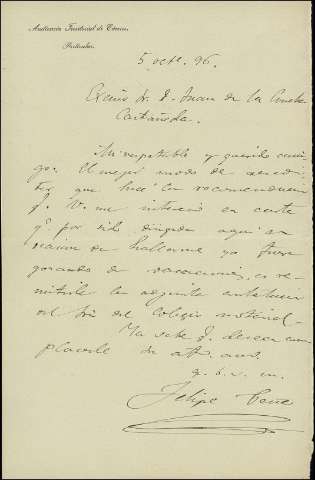 Audiencia Territorial de Cáceres
Particular
5 octe. 96.
Excmo Sr. D. Juan de la Concha
Castañeda.
Mi respetable y querido ami-
go: El mejor modo de acredi-
tar que hice la recomendacion
q. V. me interesó en carta
q. por sido dirigida aquí en
ocasion de hallarme yo fuera
gozando de vacaciones, es re-
mitirle la adjunta
del Sr. del Colegio notarial.
Ya sabe q. desea com-
placerle su afto. amo.
q. b. s. m.
Felipe